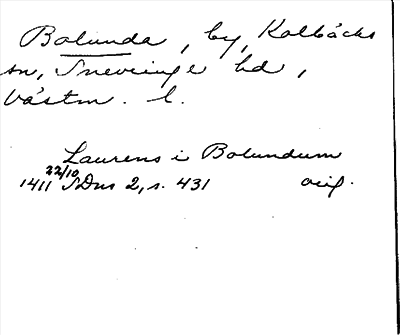 Bolunda, by, Kolbäcks
sn, Snevringe hd,
Västm. l.
Laurens i Bolundum
1411 22/10 SDns 2, s. 431 orig.